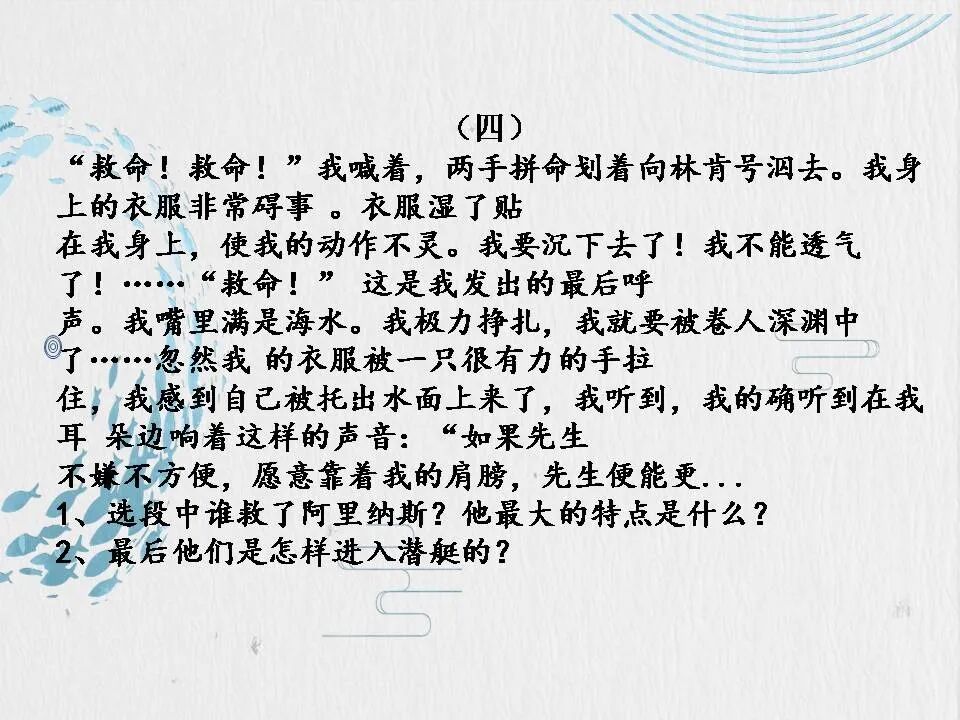 （四）
“救命！救命！”我喊着，两手拼命划着向林肯号泅去。我身
上的衣服非常碍事 。衣服湿了贴
在我身上，使我的动作不灵。我要沉下去了！我不能透气
了！……“救命！” 这是我发出的最后呼
声。我嘴里满是海水。我极力挣扎，我就要被卷人深渊中
了……忽然我 的衣服被一只很有力的手拉
住，我感到自己被托出水面上来了，我听到，我的确听到在我
耳 朵边响着这样的声音：“如果先生
不嫌不方便，愿意靠着我的肩膀，先生便能更...
1、选段中谁救了阿里纳斯？他最大的特点是什么？
2、最后他们是怎样进入潜艇的？